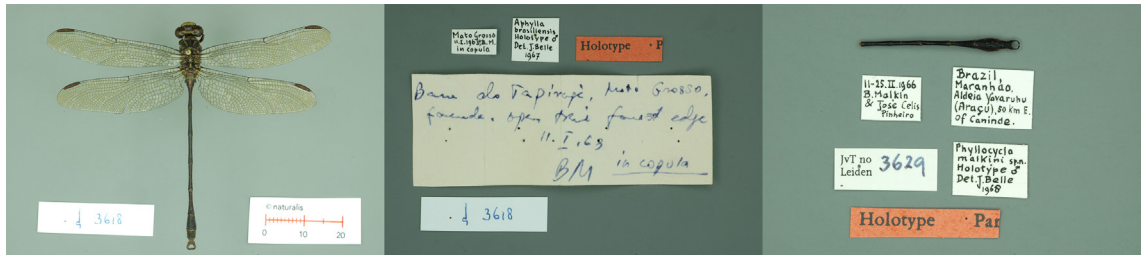 . ♂ 3618
© naturalis
0 10 20
Mato Grosso
11.I.1963 B.M.
in copula
Aphylla
brasiliensis
Holotype ♂
Det. J. Belle
1967
Holotype · P
Barra do Tapirapé, Mato Grosso,
open forest edge
11.I.63
BM in copula
. ♂ 3618
11-25.II.1966
B. Malkin
& José Celis
Pinheiro
Brazil,
Maranhão,
Aldeia Yavaruhu
(Araçu), 80 km E.
of Caninde.
JvT no 3629
Leiden
Phyllocycla
malkini spn.
Holotype ♂
Det. J. Belle
1968
Holotype · Par